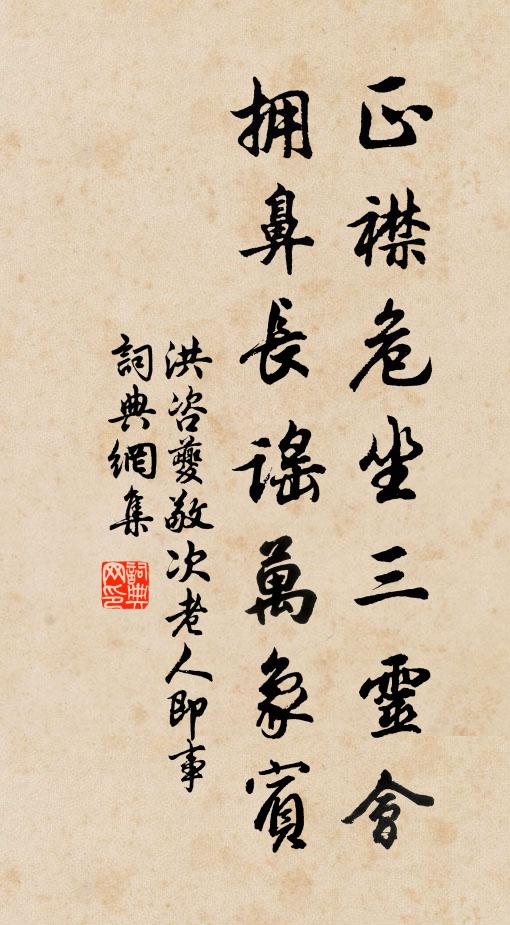 正襟危坐三靈會
擁鼻長謠萬象賓
洪咨夔敬次老人即事
詞典網集
詞典網印